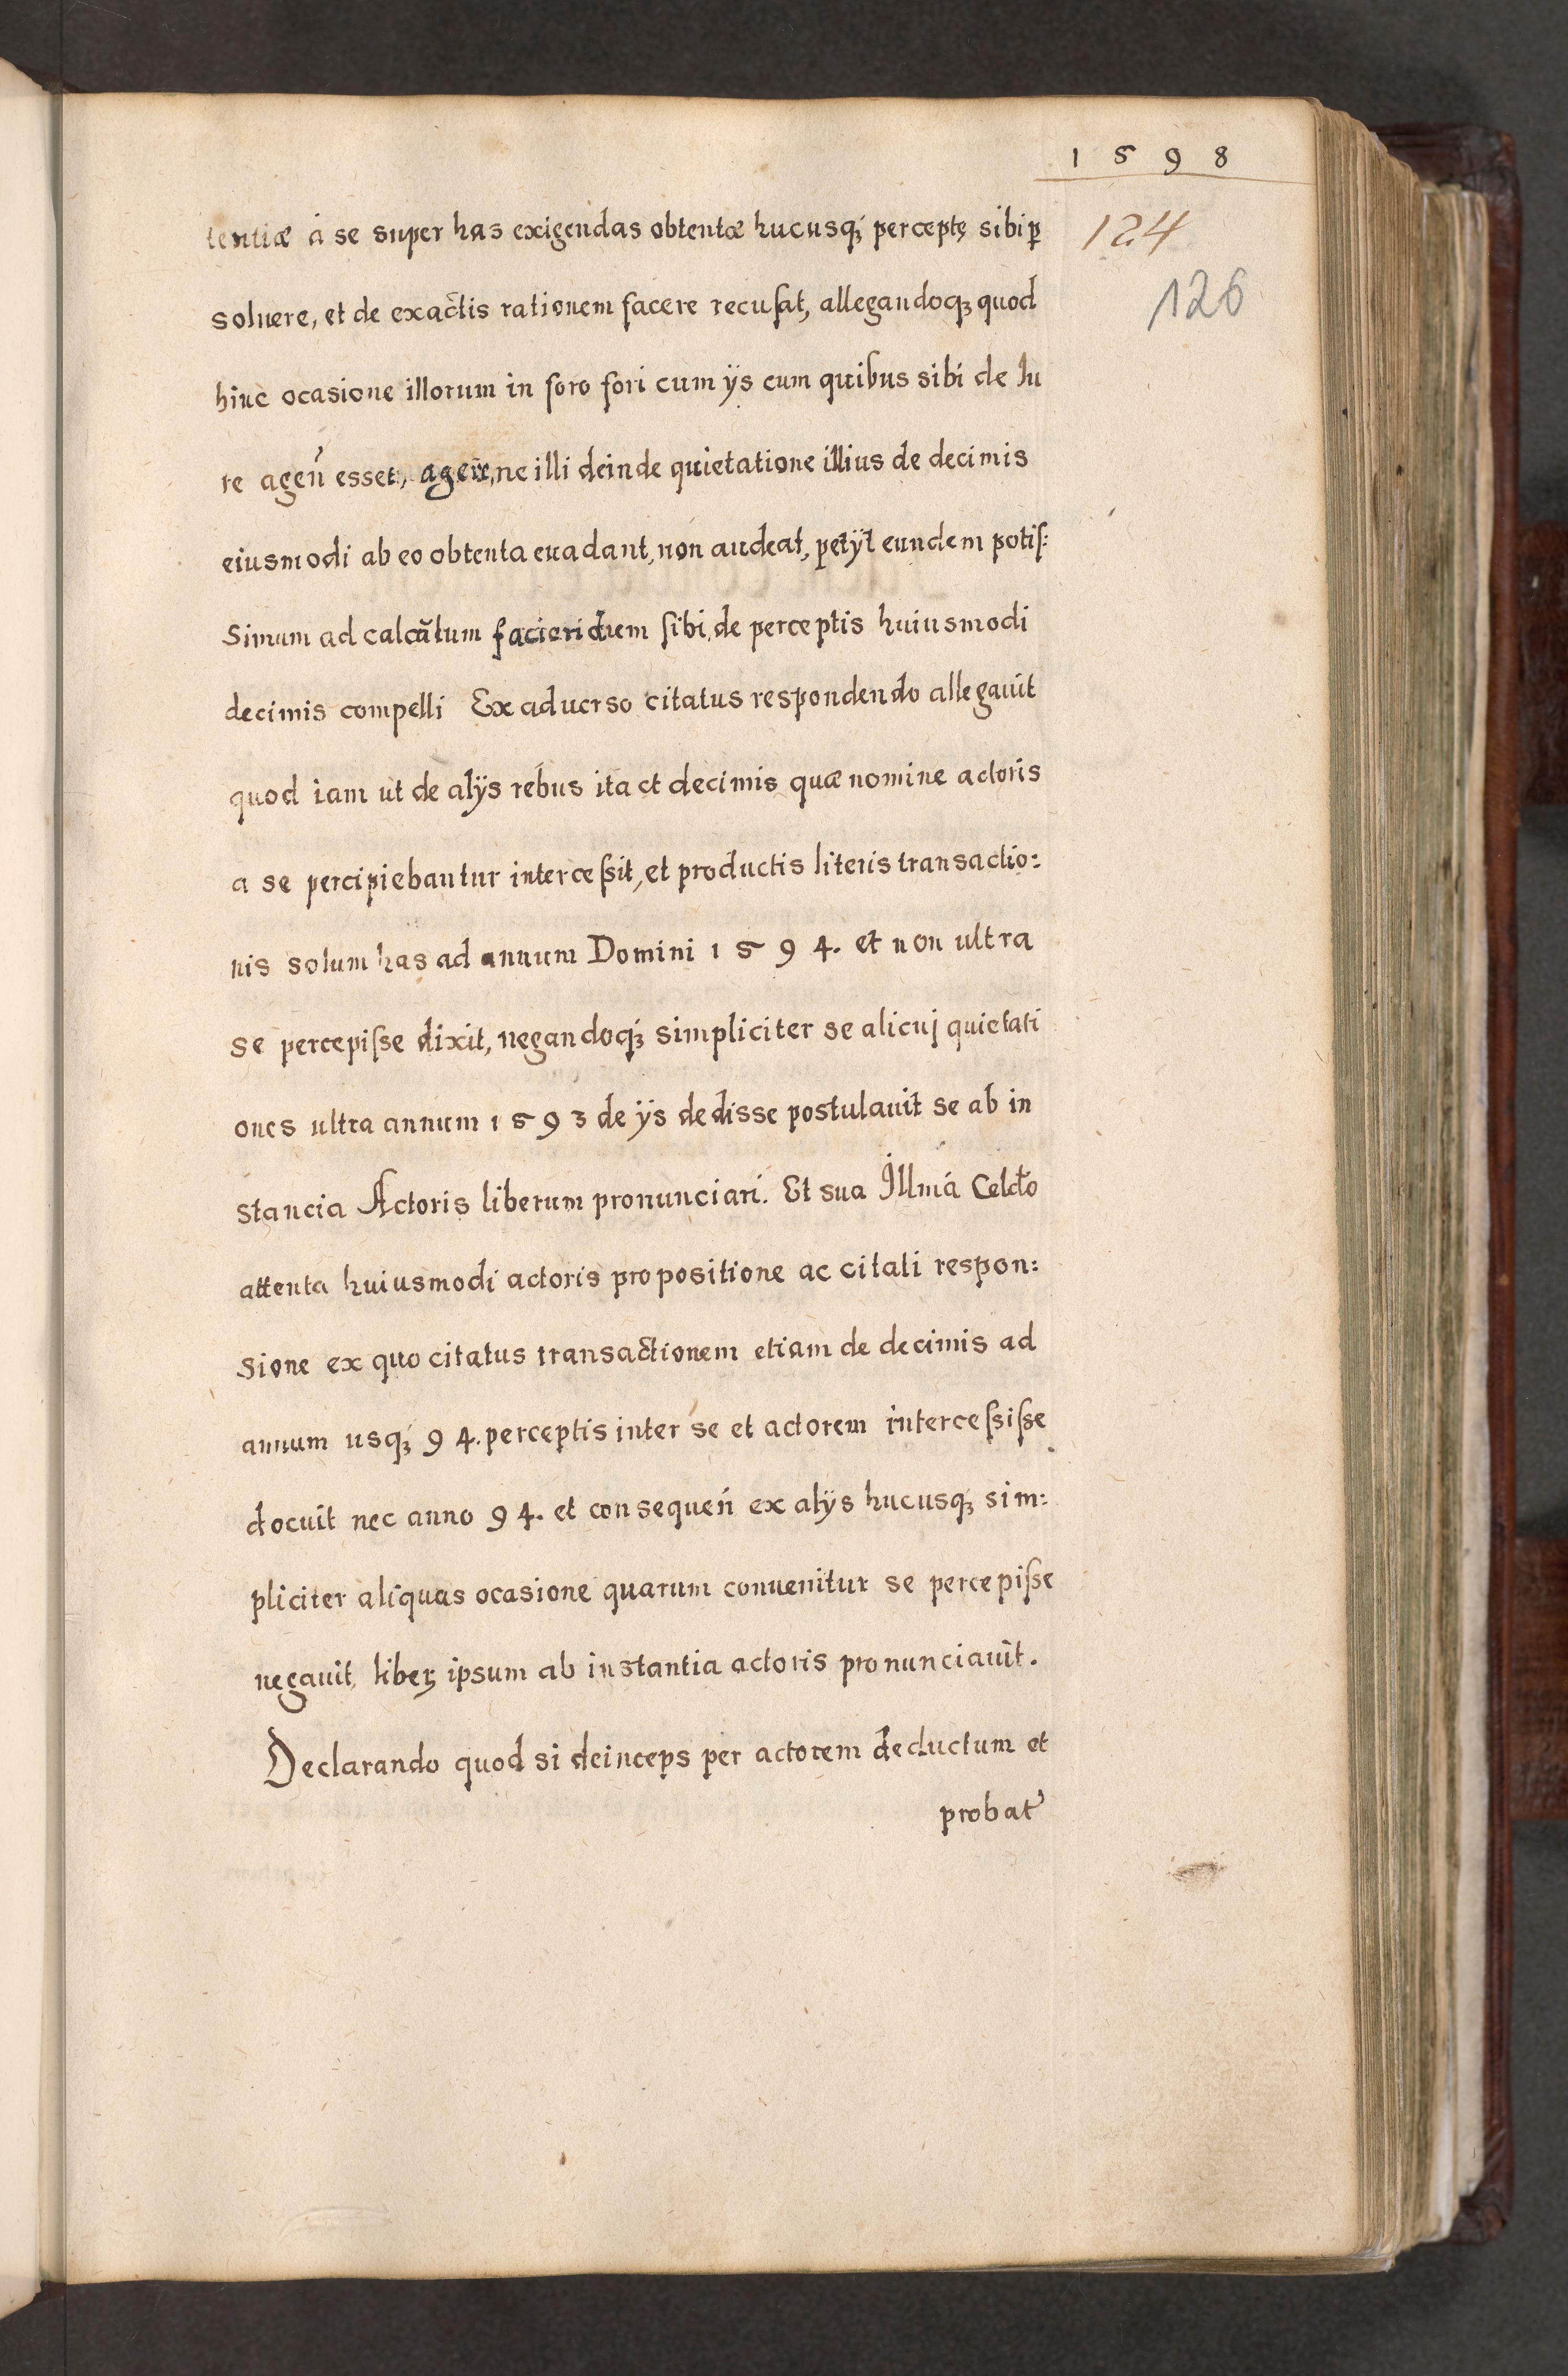 1598
124
126
tentiæ á se super has exigendas obtentæ hucusq; perceptę sibi ꝑ
soluere, et de exactis rationem facere recusat, allegandoq; quod
hinc ocasione illorum in foro fori cum ijs cum quibus sibi de Iu
re agen̄ esset, agere, ne illi deinde quietatione illius de decimis
eiusmodi ab eo obtenta euadant, non audeat, petijt eundem potiſ:
simum ad calcātum faciendum ſibi, de perceptis huiusmodi
decimis compelli Ex aduerso citatus respondendo allegauit
quod iam ut de alijs rebus ita et decimis quæ nomine actoris
a se percipiebantur interceſsit, et productis literis transactio:
nis solum has ad annum Domini 1594. et non ultra
se percepiſse dixit, negandoq; simpliciter se alicuj quietati
ones ultra annum 1593 de ijs dedisse postulauit se ab in
stancia Actoris liberum pronunciari. Et sua Illmá Celdo
attenta huiusmodi actoris propositione ac citati respon:
sione ex quo citatus transactionem etiam de decimis ad
annum usq; 94. perceptis inter se et actorem interceſsiſse
docuit nec anno 94. et consequen̄ ex alijs hucusq; sim:
pliciter aliquas ocasione quarum conuenitur se percepiſse
negauit, liberꝫ ipsum ab instantia actoris pronunciauit.
Declarando quod si deinceps per actorem deductum et
probat'